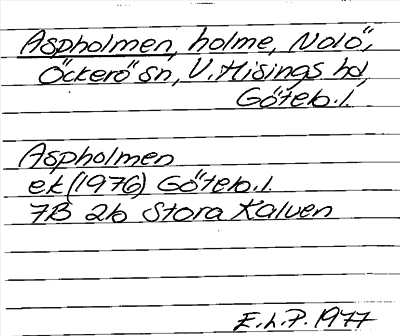 Aspholmen, holme, Nolö,
Öckerö sn, V. Hisings hd,
Göteb. l.
Aspholmen
ek (1976) Göteb. l.
7B 2b Stora Kalven
E. L. P. 1977